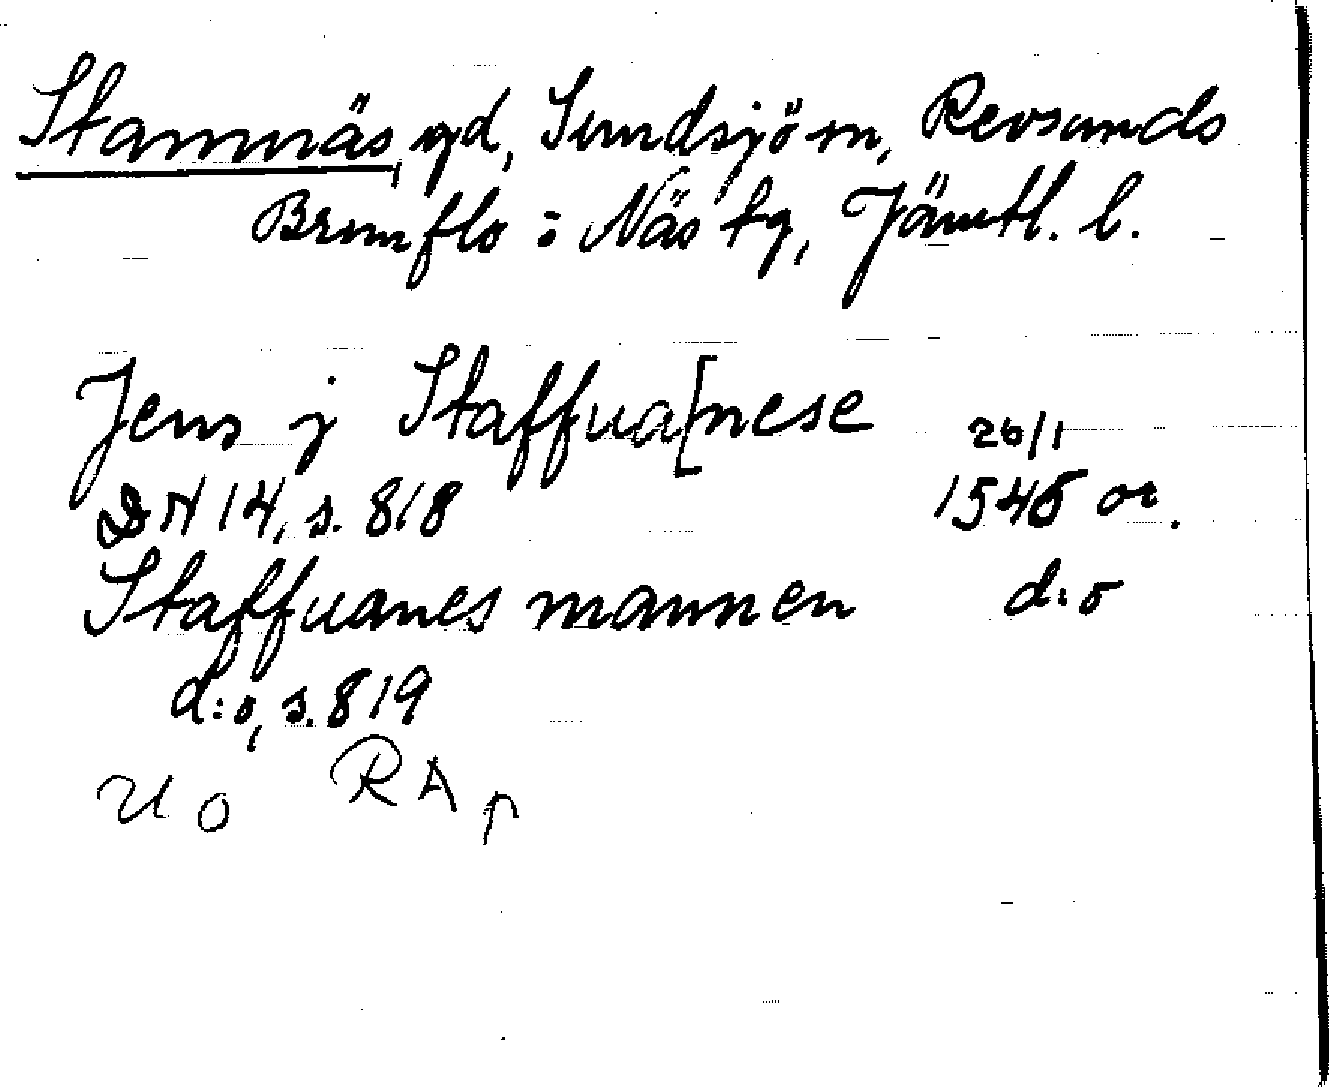 Stamnäs, gd, Sundsjö sn, Revsunds
Brunflo o Näs tg, Jämtl. l.
Jens j Staffua[nese 26/1
DN 14, s. 818 1545 or.
Staffuanes mannen d:o
d:o, s. 819
U o RA